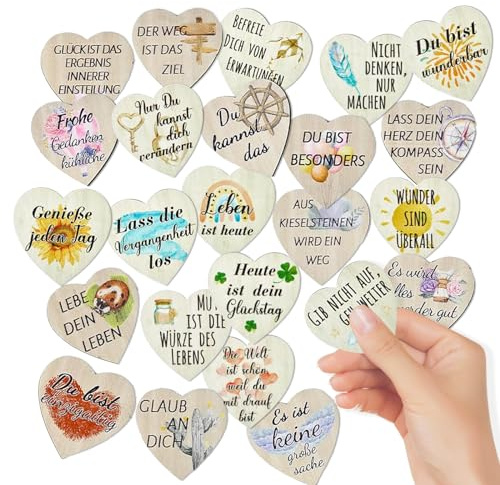 GLÜCK IST DAS
ERGEBNIS
INNERER
EINSTEILUNG
DER WEG
IST DAS
ZIEL
BEFREIE
DICH VON
ERWARTUNGEN
NICHT
DENKEN,
NUR
MACHEN
Du bist
wunderbar
Frohe
Gedanken
Nur Du
kannst
dich
verändern
Du
kannst
das
DU BIST
BESONDERS
LASS DEIN
HERZ DEIN
KOMPASS
SEIN
Genieße
jeden Tag
Lass die
Vergangenheit
los
Leben
ist heute
AUS
KIESELSTEINEN
WIRD EIN
WEG
WUNDER
SIND
ÜBERALL
LEBE
DEIN
LEBEN
IST DIE
WÜRZE DES
LEBENS
Heute
ist dein
Glückstag
GIB NICHT AUF,
GEH WEITER
Es wird
alles
gut
Du bist
einzigartig
GLAUB
AN
DICH
Die Welt
ist schön
weil du
mit drauf
bist
Es ist
keine
große
sache